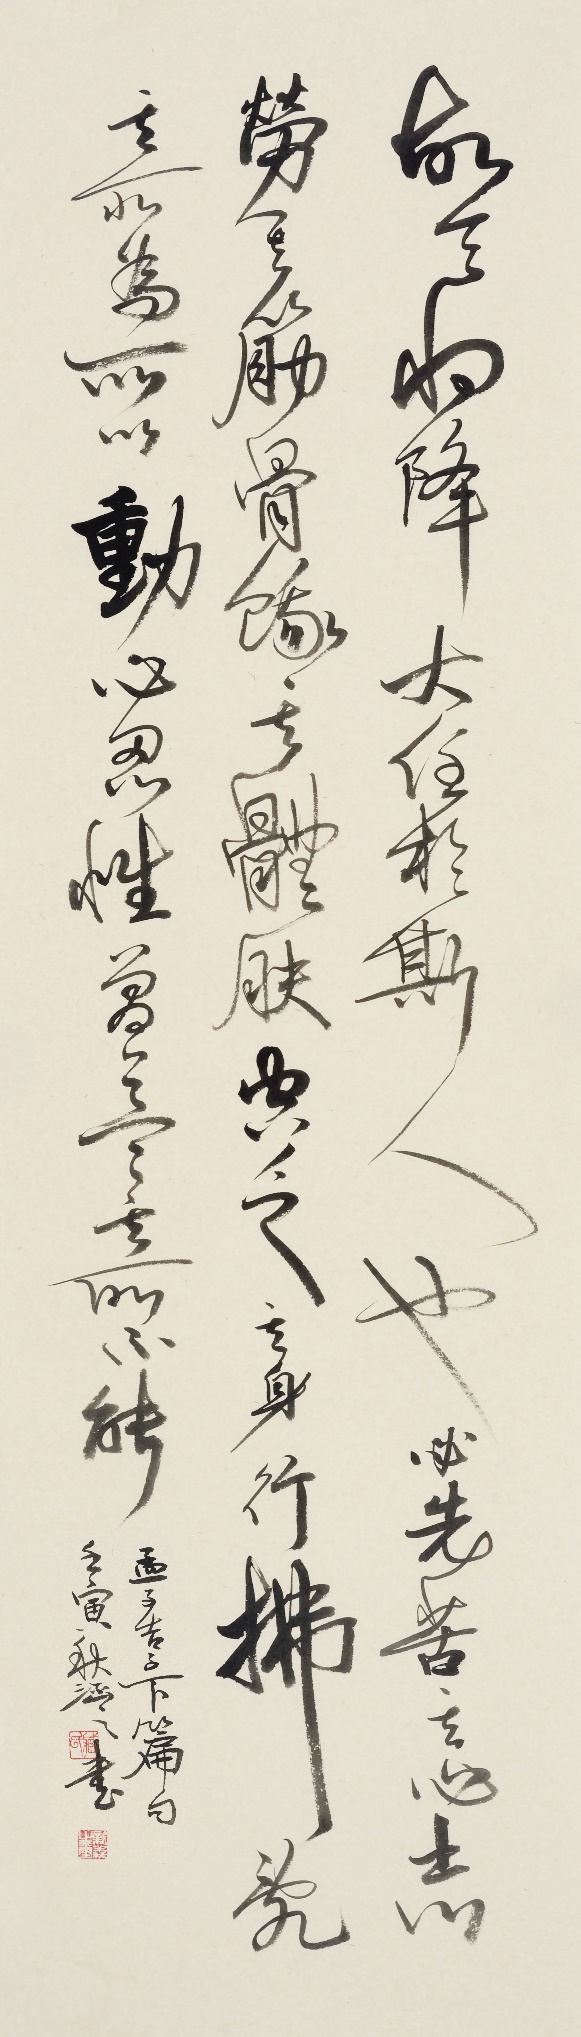 故天将降大任於斯人也必先苦其心志
勞其筋骨餓其體肤空乏其身行拂亂
其所為所以動心忍性曾益其所不能
孟子告子下篇句
壬寅秋濟之書